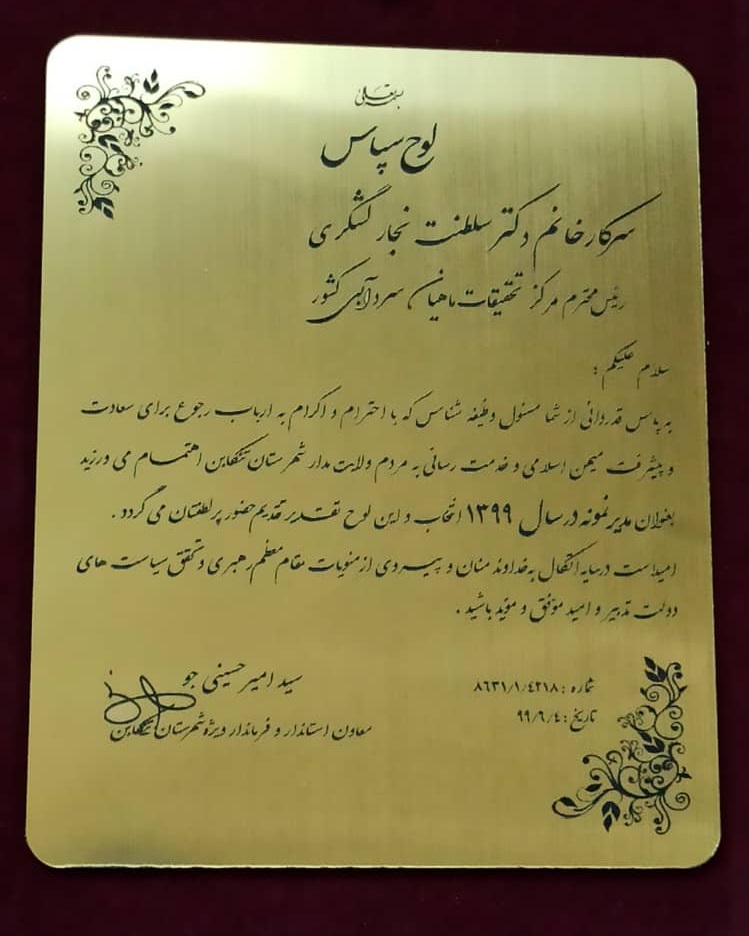 بسمه تعالی
لوح سپاس
سرکار خانم دکتر سلطنت نجار لشگری
رئیس محترم مرکز تحقیقات ماهیان سردآبی کشور
سلام علیکم :
به پاس قدردانی از شما مسئول وظیفه شناس که با احترام و اکرام به ارباب رجوع برای سعادت
و پیشرفت میهن اسلامی و خدمت رسانی به مردم ولایت مدار شهرستان تنکابن اهتمام می ورزید
بعنوان مدیر نمونه در سال ۱۳۹۹ انتخاب و این لوح تقدیر تقدیم حضور پر لطفتان می گردد .
امید است در سایه اتکال به خداوند منان و پیروی از منویات مقام معظم رهبری و تحقق سیاست های
دولت تدبیر و امید موفق و موید باشید .
سید امیر حسینی جو
معاون استاندار و فرماندار ویژه شهرستان تنکابن
شماره : ۸۶۳۱/۱/۴۲۱۸
تاریخ : ۹۹/۶/۴